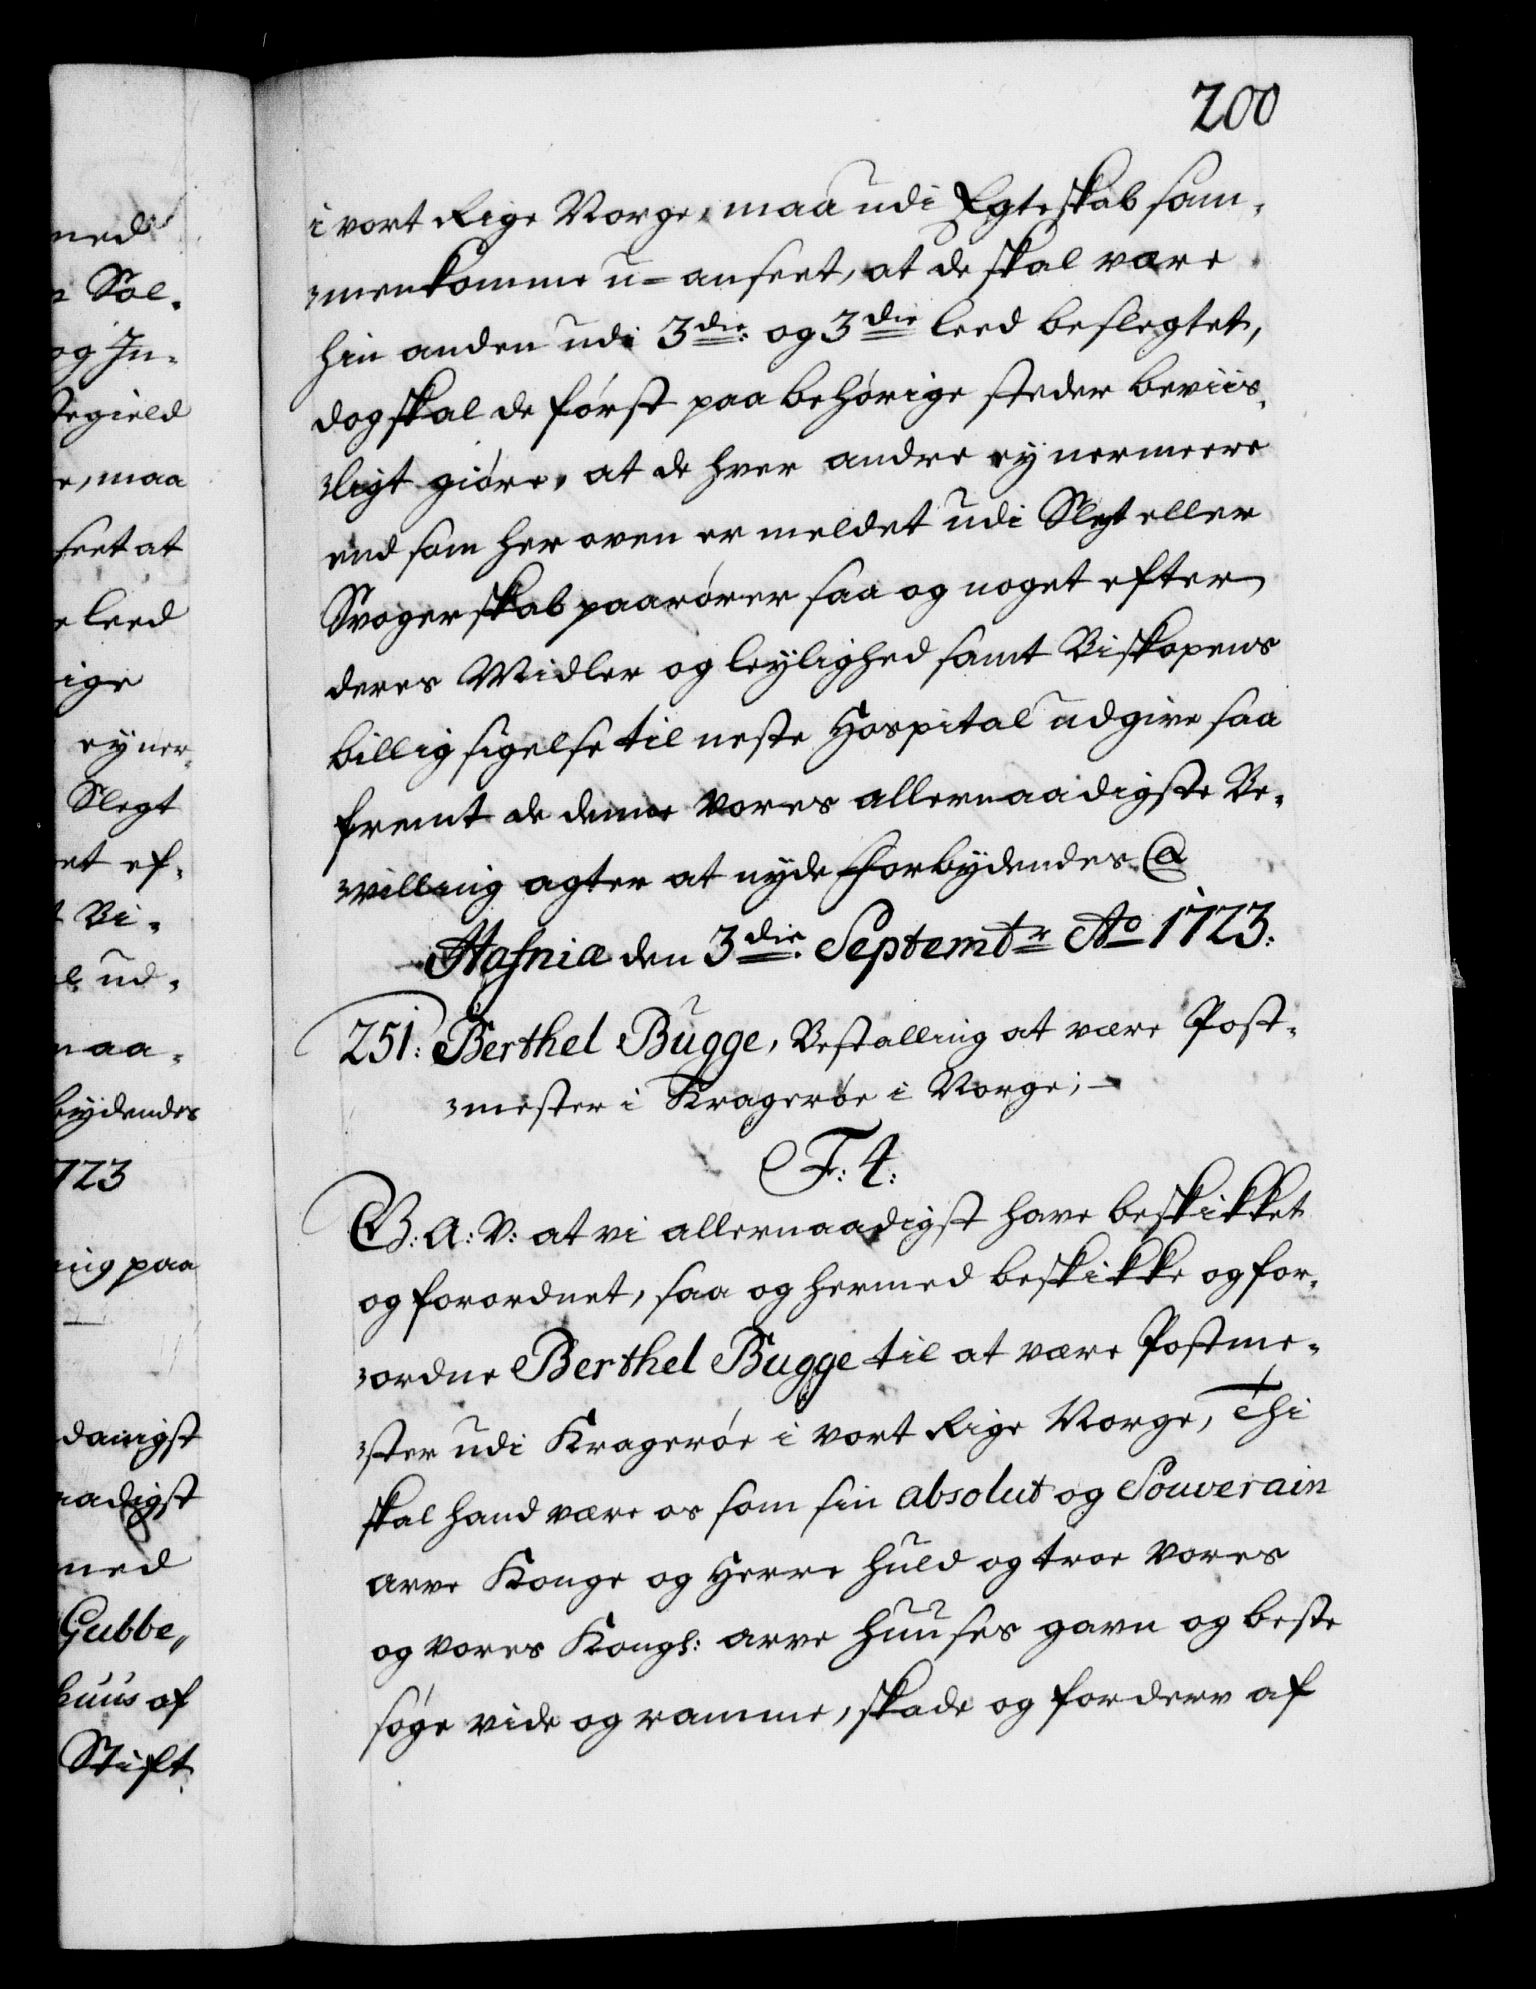 200
i vort Rige Norge, maa udi Egteskab sam-
menkomme u-anseet, at de skal være
hin anden udi 3die: og 3die leed beslegtet,
dog skal de först paa behörige steder beviis-
ligt giöre, at de hver andre ey nermeere
end som her oven er meldet udi Slegt eller
Svogerskab paarörer saa og noget efter
deres Midler og leylighed samt Biskopens
billigsigelse til neste Hospital udgive saa
fremt de denne vores allernaadigste Be-
villing agter at nyde Forbydendes @
Hafniæ den 3die Septembr Ao 1723:
251: Berthel Bugge, Bestalling at være Post-
mester i Krageröe i Norge; -
F: 4:
G: A: V: at vi allernaadigst have beskikket
og forordnet, saa og hermed beskikke og for-
ordne Berthel Bugge til at være Postme-
ster udi Krageröe i vort Rige Norge, Thi
skal hand være os som sin absolut og Souverain
arve Konge og Herre huld og troe vores
og vores Kongl: arve Huuses gavn og beste
söge vide og ramme, skade og forderv af
ned
Sol-
og In-
tegield
e, maa
seet at
leed
ige
ey ner-
Slegt
et ef-
Bi-
ud-
naa-
bydendes
1723
ing paa
danigst
naadigst
med
Gubbe„
huus af
Stift